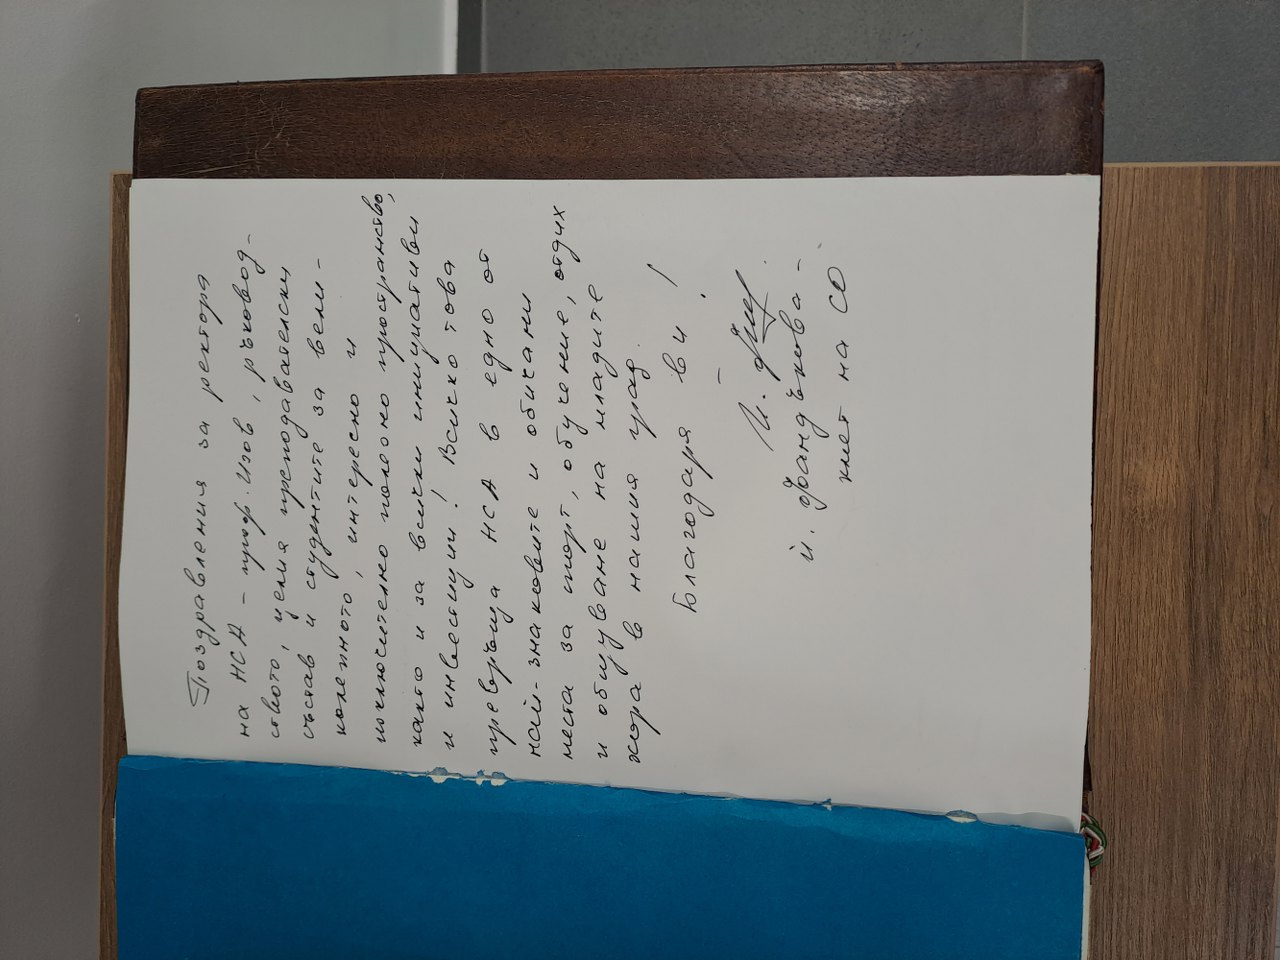 Поздравления за ректора
на НСА - проф. Изов, ръковод-
ството, целия преподавателски
състав и студентите за вели-
колепното, интересно и
изключително полезно пространство,
както и за всички инициативи
и инвестиции! Всичко това
превръща НСА в едно от
най-знаковите и обичани
места за спорт, обучение, отдих
и общуване на младите
хора в нашия град.
Благодаря Ви!
Й. Фандъкова -
кмет на СО